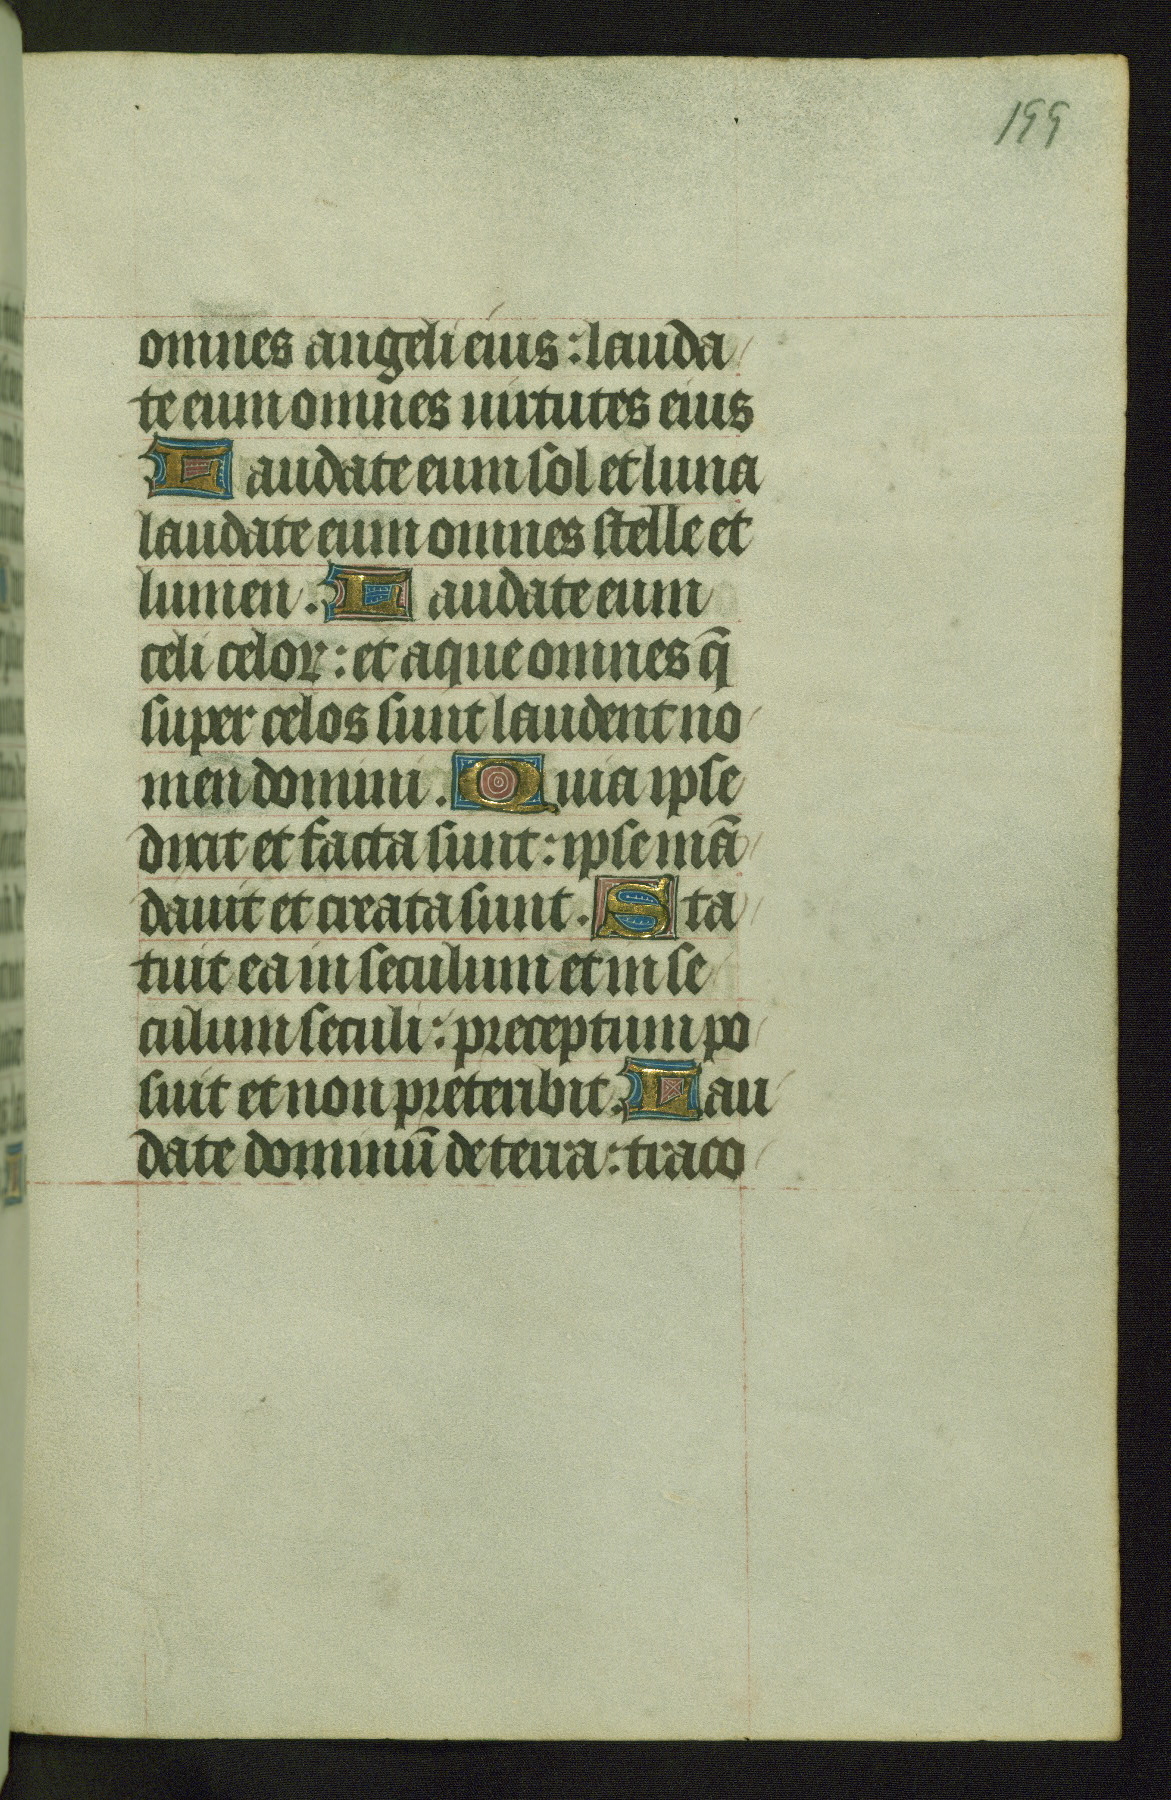 199
omnes angeli eius : lauda
te eum omnes uirtutes eius
Laudate eum sol et luna
laudate eum omnes stelle et
lumen . Laudate eum
celi celoꝝ : et aque omnes q̄
super celos sunt laudent no
men domini . Quia ipse
dixit et facta sunt : ipse mā
dauit et creata sunt . Sta
tuit ea in seculum et in se
culum seculi : preceptum po
suit et non preteribit . Lau
date dominū de terra : traco